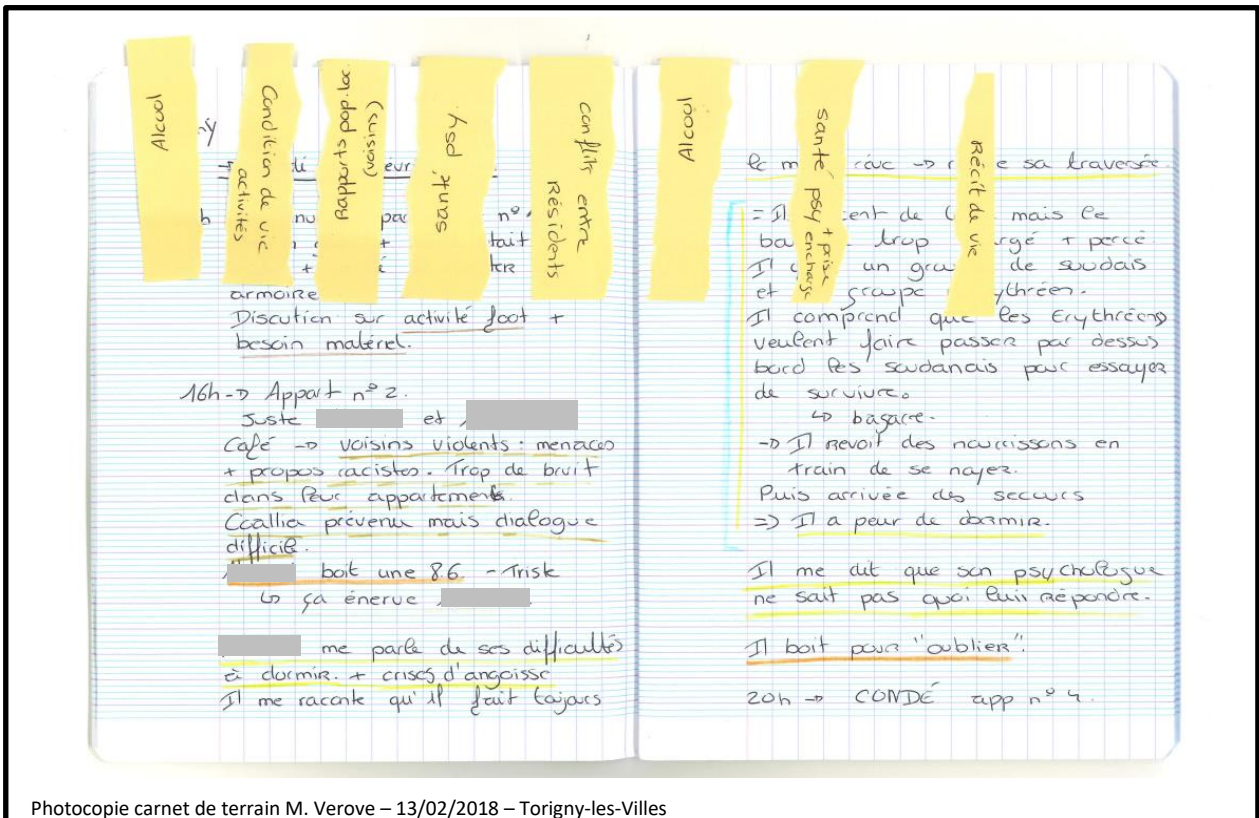 Alcool
Condition de vie
activités
Rapports pop.loc
(cuision)
santé psy.
conflits entre
Résidents
Alcool
santé psy + prise
encharge
Récit de vie
armoire
Discution sur activité foot +
besoin matérel.
16h -> Appart n° 2.
Juste et
Café -> voisins violents : menaces
+ propos racistes. Trop de bruit
dans leur appartement.
Coallia prévenu mais dialogue
difficile.
boit une 8.6. - Trisk
↳ ça énerve
me parle de ses difficultés
à dormir. + crises d'angoisse
Il me raconte qu'il fait toujours
le m sa traversée.
= Il mais le
trop + percé
Il un de soudais
et
Il comprend que les Erythréens
veulent faire passer par dessus
bord les soudanais pour essayer
de survivre.
↳ bagarre.
-> Il revoit des nourrissons en
train de se noyer.
Puis arrivée des secours
=> Il a peur de dormir.
Il me dit que son psychologue
ne sait pas quoi luii répondre.
Il boit pour "oublier".
20h -> CONDÉ app n° 4.
Photocopie carnet de terrain M. Verove – 13/02/2018 – Torigny-les-Villes